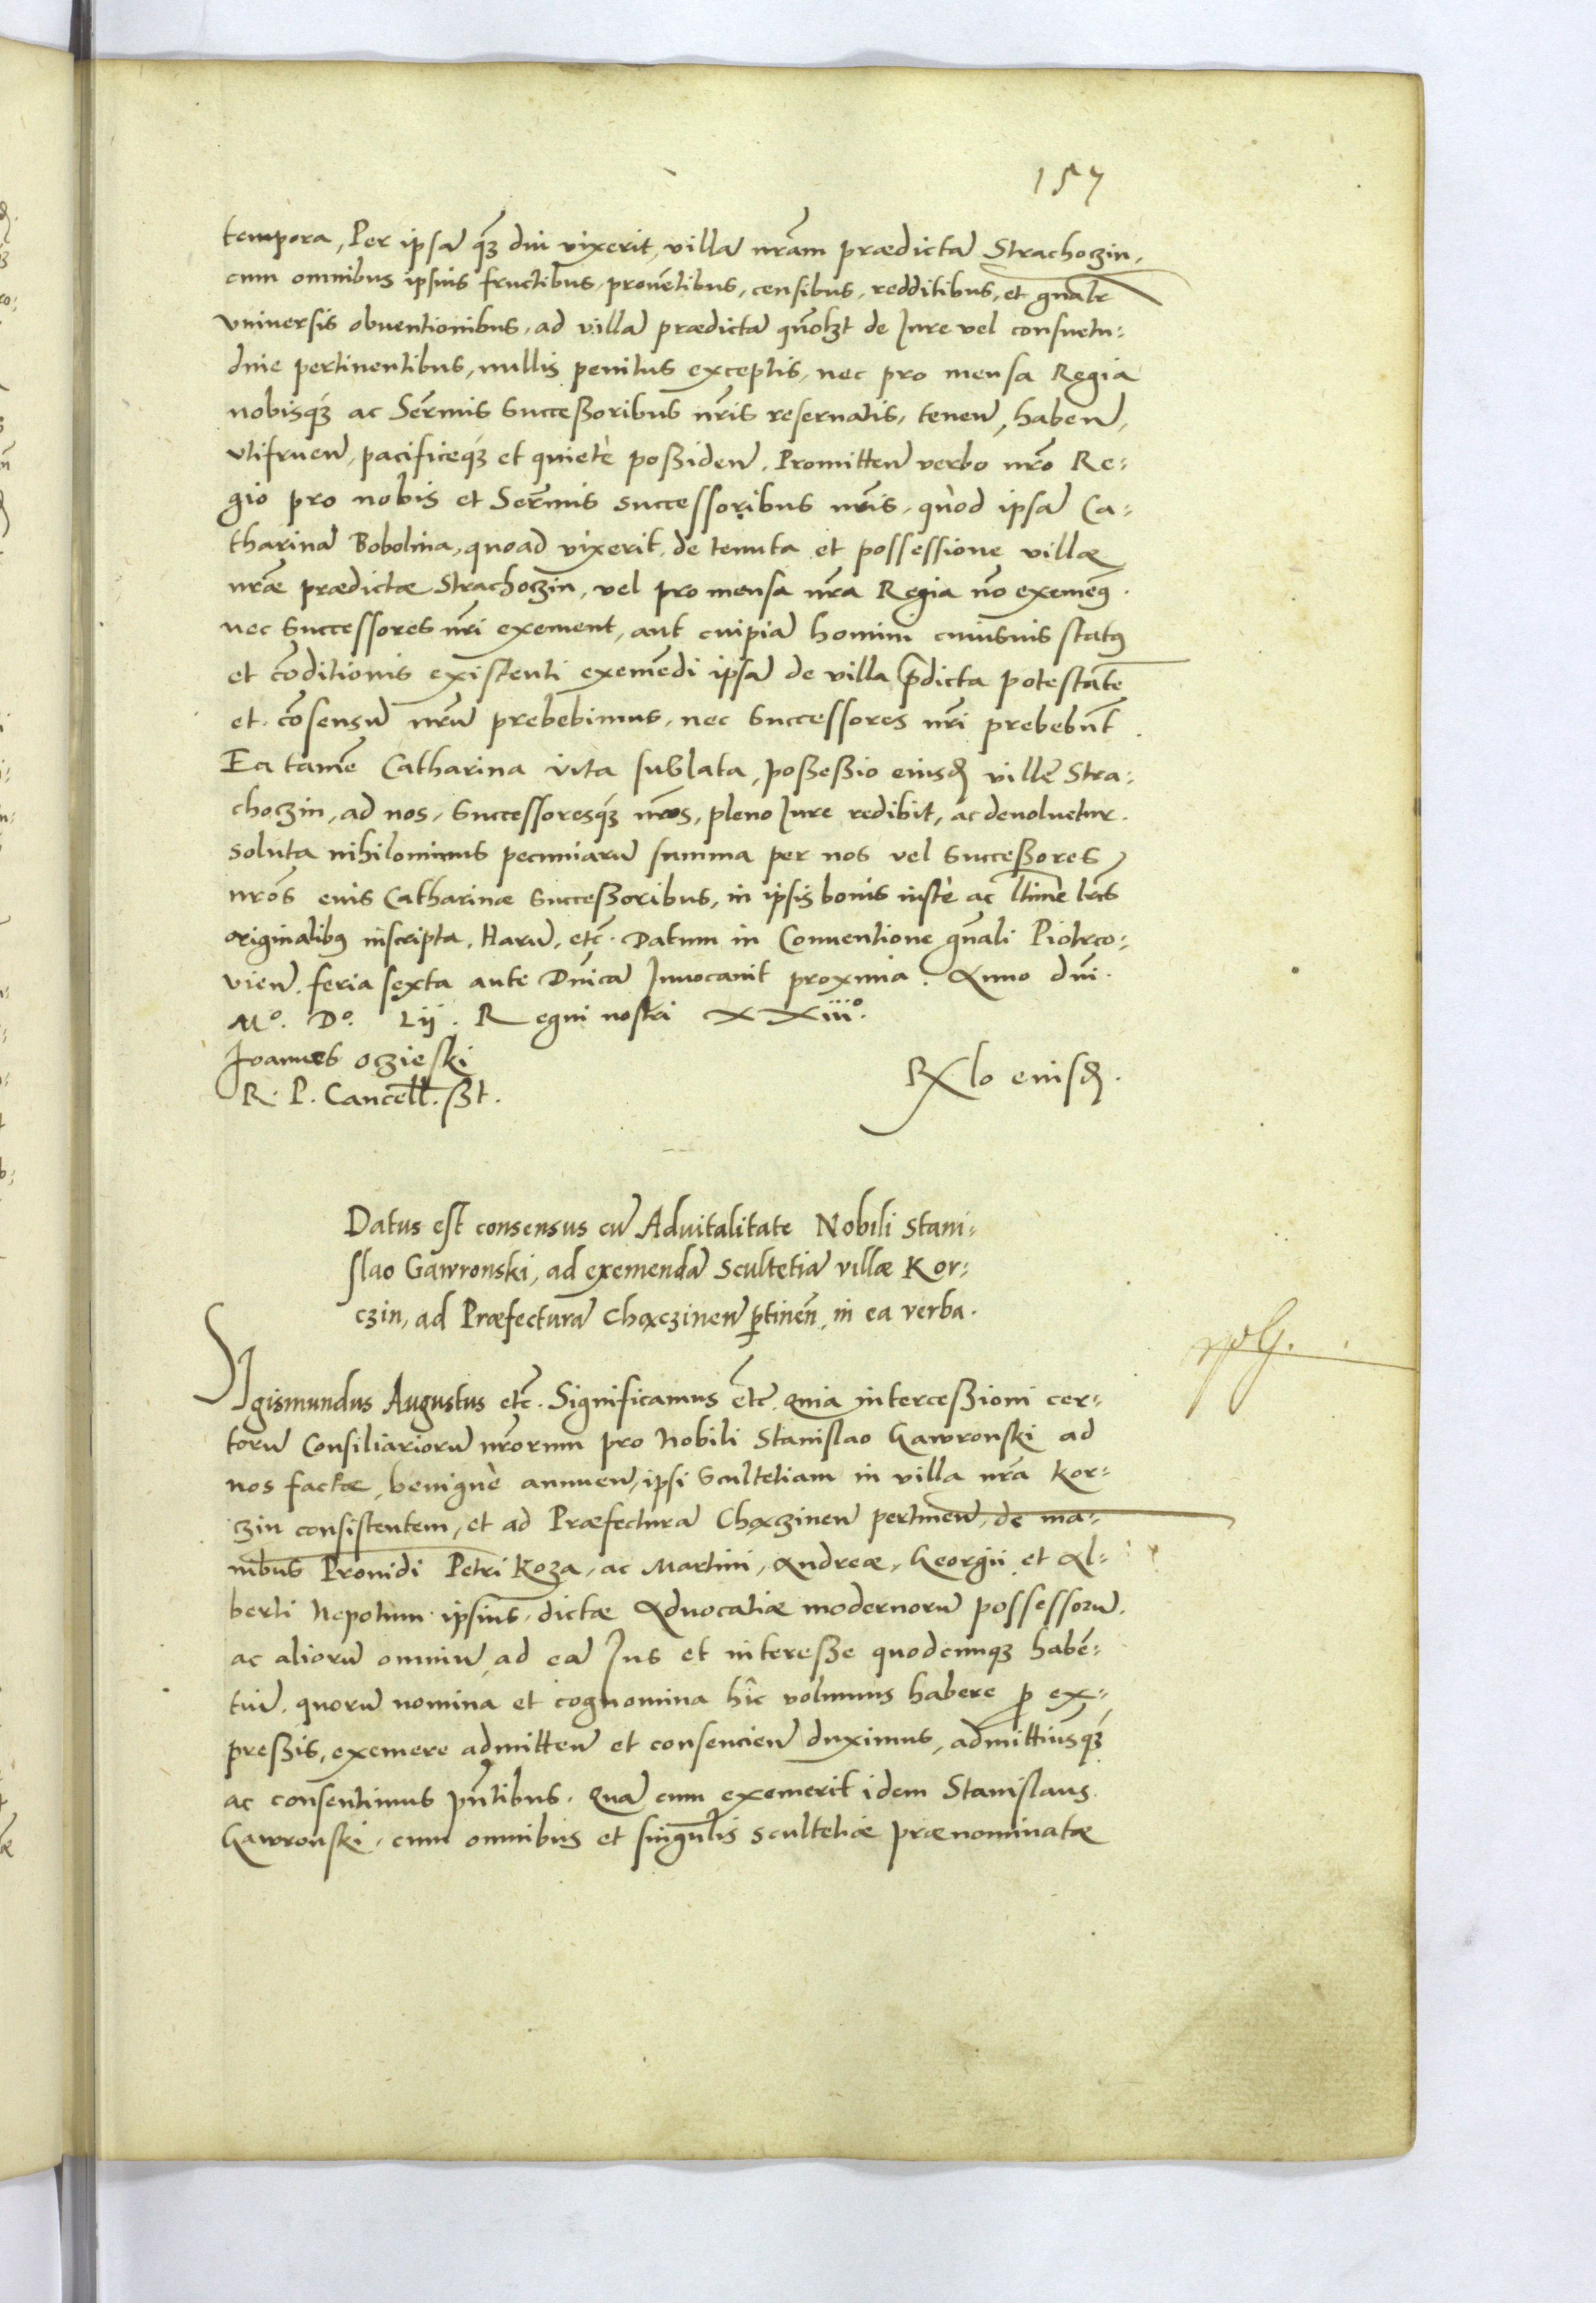 157
tempora, Per ipsã qz̃ diu vixerit, villã nrãm prædictã Strachoczin,
cum omnibus ipsius fructibus, prouẽtibus, censibus, redditibus, et gnalr̃
vniuersis obuentionibus, ad villã prædictã quõlzt de Iure vel consuetu-
dine pertinentibus, nullis penitus exceptis, nec pro mensa Regia
nobisqź ac Serm̃is Succeßoribus nr̃is reseruatis, teneñ, habeñ,
vtifrueñ, pacificeqź et quietè poßideñ. Promitteñ verbo nrõ Re-
gio pro nobis et Serm̃is successoribus nr̃is, quòd ipsã Ca-
tharinã Bobolina, quoad vixerit, de tenuta et possessione villæ
nræ̃ prædictæ Strachoczin, vel pro mensa nr̃a Regia nõ exemẽ9.
nec Successores nr̃i exement, aut cuipiã homini cuiusuis stat9
et cõditionis existenti exemẽdi ipsã de villa p̃dicta potestatẽ
et cõsensũ nrũ prebebimus, nec Successores nr̃i prebebũt.
Ea tamẽ Catharina vita sublata, poßeßio eiusd̃ villẽ Stra-
choczin, ad nos, Successoresqź nrõs, pleno Iure redibit, ac deuoluetur.
soluta nihilominus pecuniarũ summa per nos vel Succeßores
nrõs euis Catharinæ Succeßoribus, in ipsis bonis iustè ac ltimè lrı̃s
originalib9 inscripta. Harũ, etc̃. Datum in Conuentione gñali Piotrco-
vieñ. feria sexta ante Dñicã Inuocauit proxima. Anno dñi.
Mº. Dº. Lij. Regni nostri XXiiiº.
Ioannes oczieski
R. P. Cancell̃. ßt.
Rxlo eiusd̃.
Datus est consensus cũ Aduitalitate Nobili Stani-
slao Gawronski, ad exemendã Scultetiã villæ Kor-
czin, ad Præfecturã Choczineñ ptineñ, in ea verba.
SIgismundus Augustus etc̃. Significamus etc̃. Quia interceßioni cer-
torũ Consiliariorũ nrõrum pro Nobili Stanislao Gawronski ad
nos factæ, benignè annueñ, ipsi Scultetiam in villa nr̃a Kor-
czin consistentem, et ad Præfecturã Choczineñ pertineñ, de ma-
nib̃us Prouidi Petri Koza, ac Martini, Andreæ, Georgii et Al-
berti Nepotum ipsius, dictæ Aduocatiæ modernorũ possessorũ.
ac aliorũ omniũ ad eã Ius et intereße quodcunqz habẽ-
tiũ. quorũ nomina et cognomina hîc volumus habere p ex-
preßis, exemere admitteñ et consencieñ duximus, admittim̃sqź
ac consentimus pñtibus. Quã cum exemerit idem Stanislaus
Gawronski, cum omnibus et singul̃is scultetiæ prænominatæ